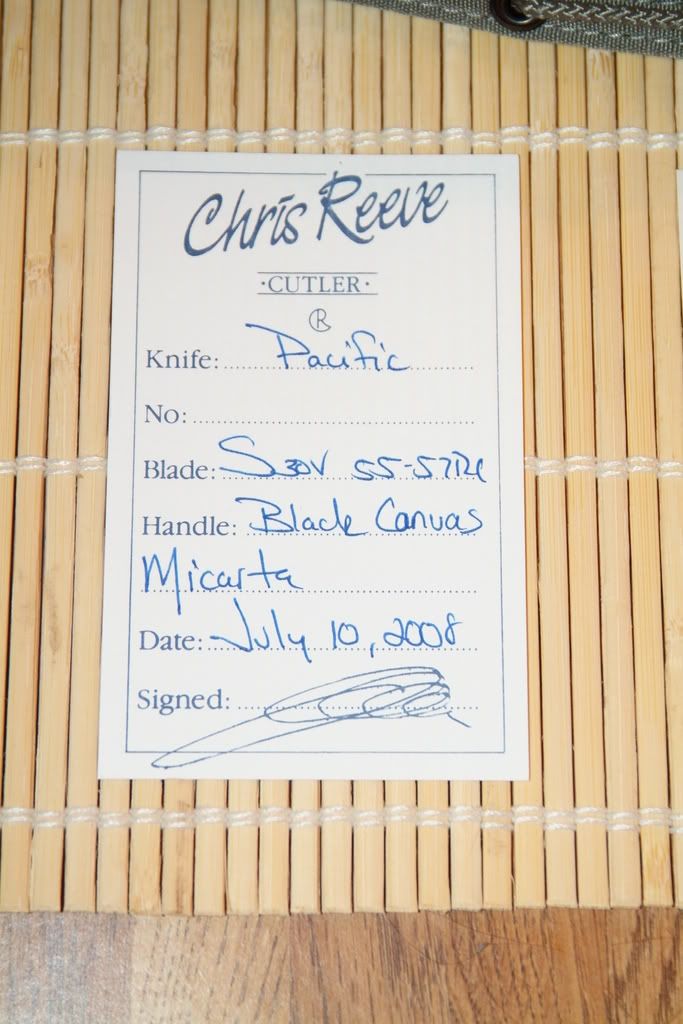 Chris Reeve
·CUTLER·
®
Knife: Pacific
No:
Blade: S30V 55-57RC
Handle: Black Canvas
Micarta
Date: July 10, 2008
Signed: